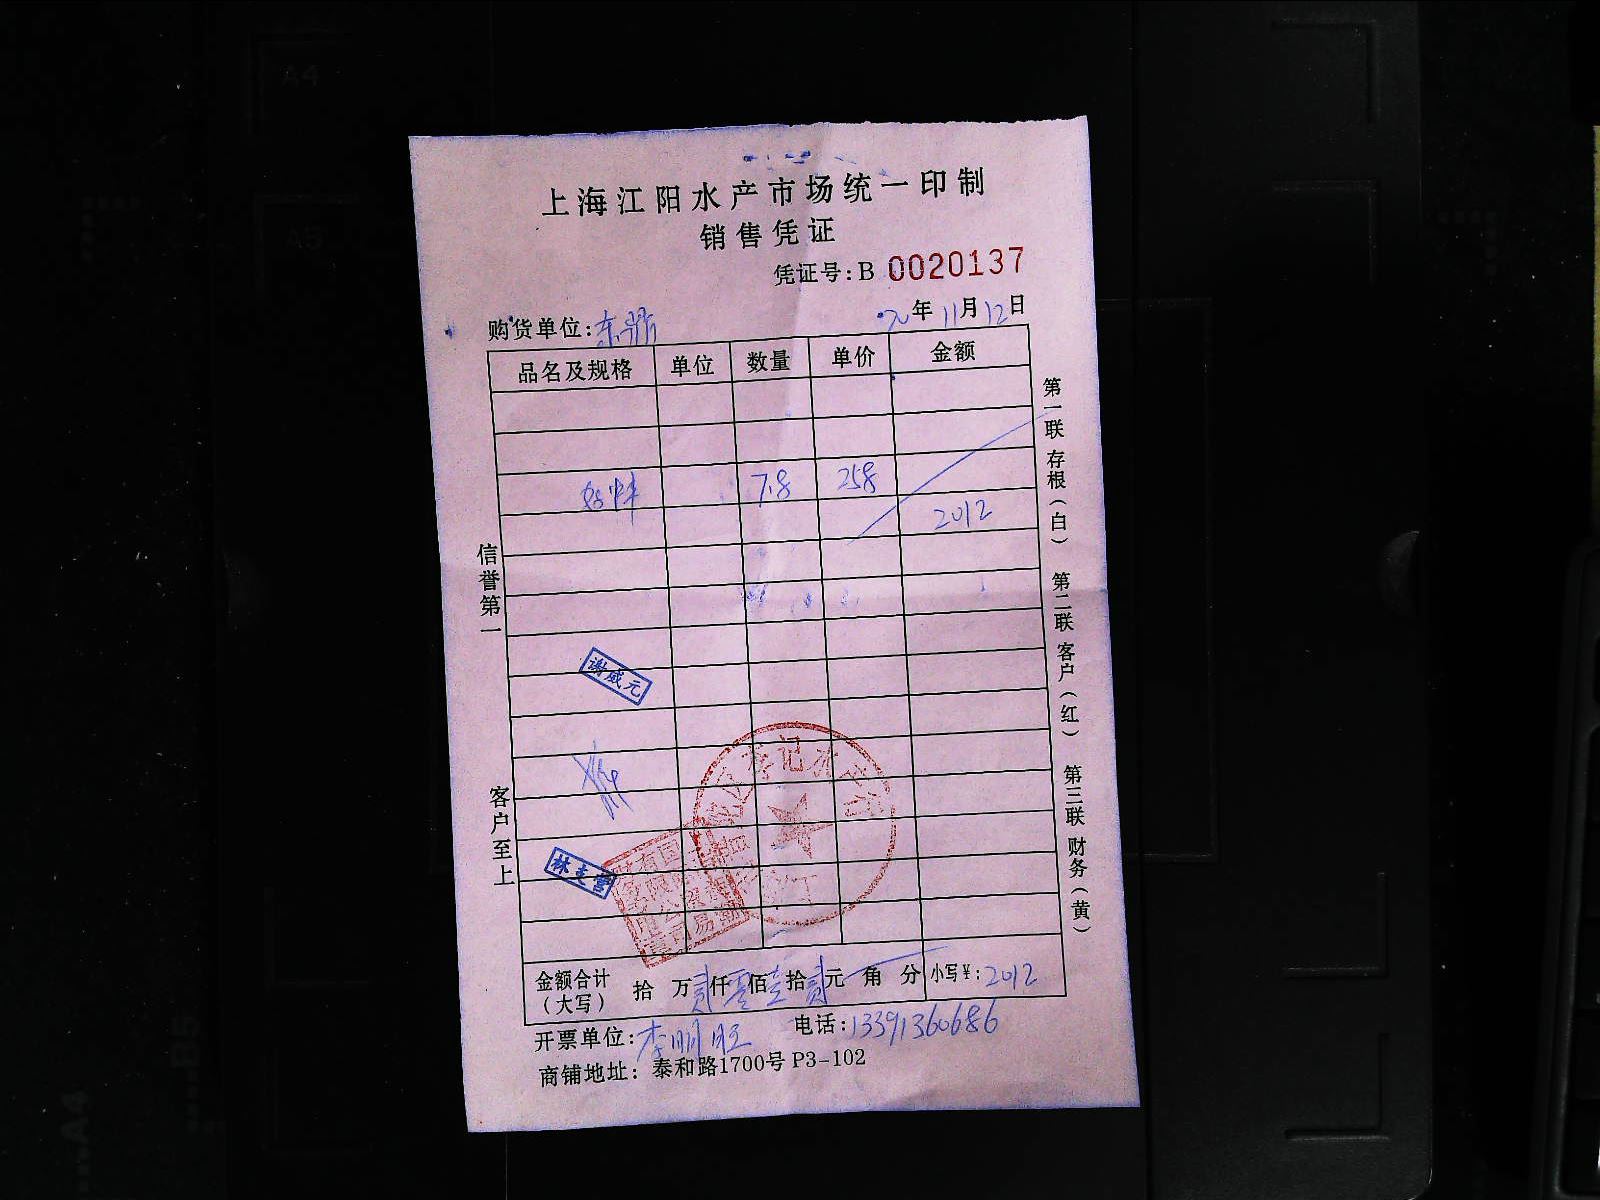 上海江阳水产市场统一印制
销售凭证
凭证号：B 0020137
年11月12日
购货单位：东鼎
品名及规格 单位 数量 单价 金额
7.8 258
2012
谢咸元
金额合计（大写） 拾 万贰仟零佰壹拾贰元 角 分 小写¥：2012
开票单位：李明旺 电话：13391360686
商铺地址：泰和路1700号 P3-102
信誉第一 客户至上
第一联 存根（白） 第二联 客户（红） 第三联 财务（黄）